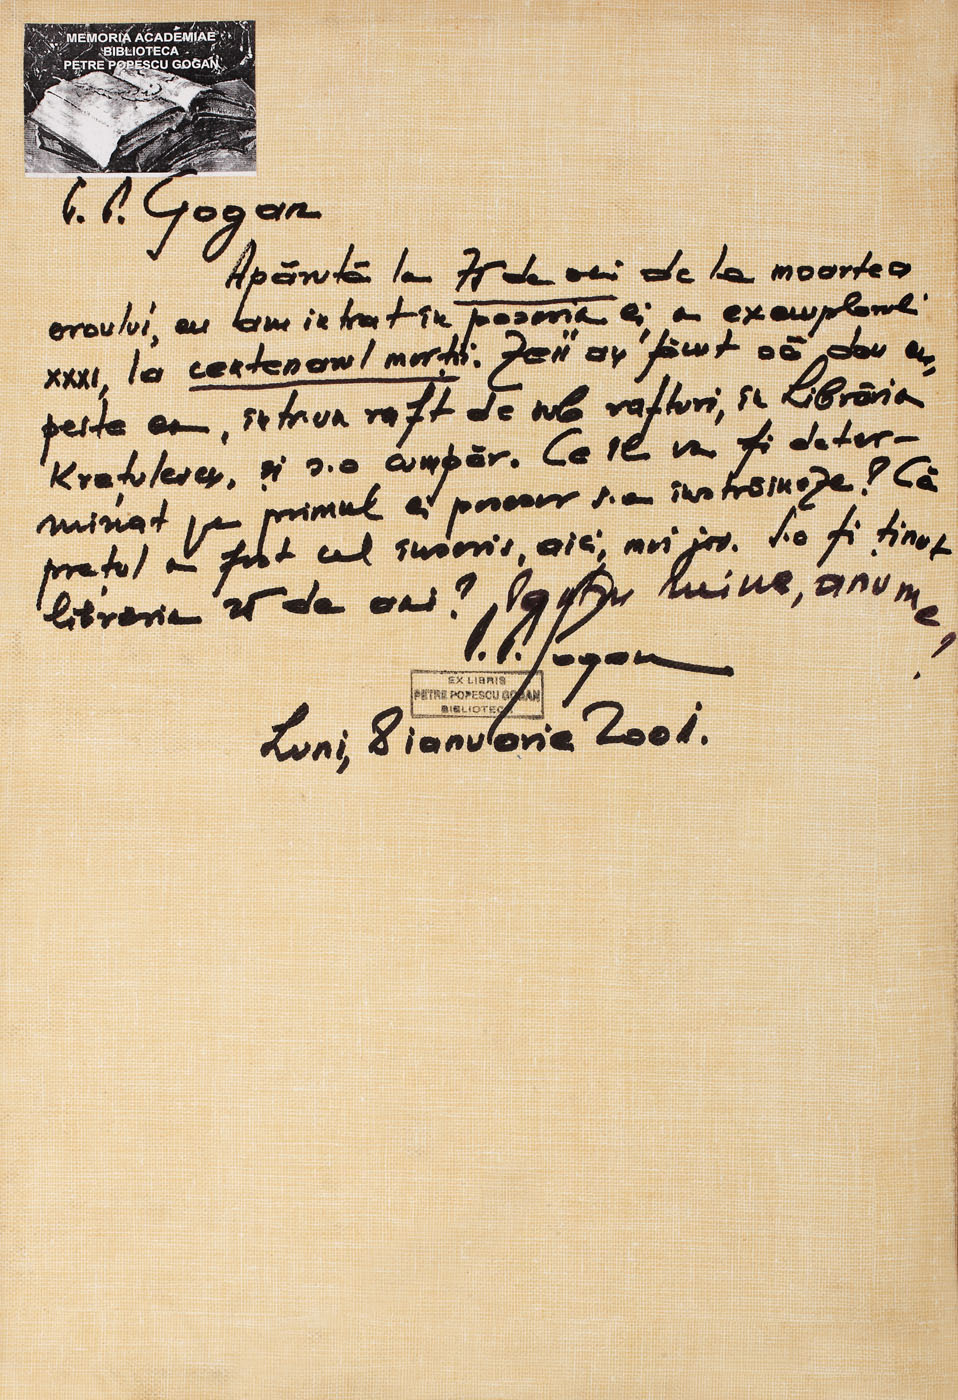 MEMORIA ACADEMIAE
BIBLIOTECA
PETRE POPESCU GOGAN
P. P. Gogan
Apărută la 75 de ani de la moartea
eroului, eu am intrat în posesia ei, a exemplarul
XXXI, la centenarul morții. Zeii au făcut să dau eu,
peste ea, într'un raft de sub rafturi, în Librăria
Krețulescu, și s-o cumpăr. Ce îl va fi deter-
minat pe primul ei posesor s-o înstrăineze? Că
prețul a fost cel înscris, aici, mai jos. S-o fi ținut
librăria 25 de ani? Pentru mine, anume,
P. P. Gogan
EX LIBRIS
PETRE POPESCU GOGAN
BIBLIOTECA
Luni, 8 ianuarie 2001.